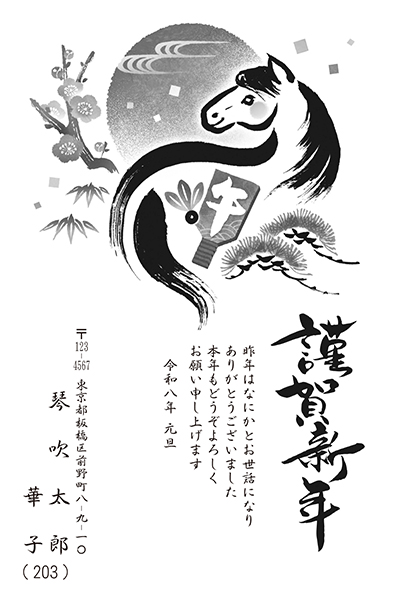 午
謹賀新年
昨年はなにかとお世話になり
ありがとうございました
本年もどうぞよろしく
お願い申し上げます
令和八年 元旦
〒123-4567
東京都板橋区前野町八-九-一〇
琴吹太郎
華子
(203)